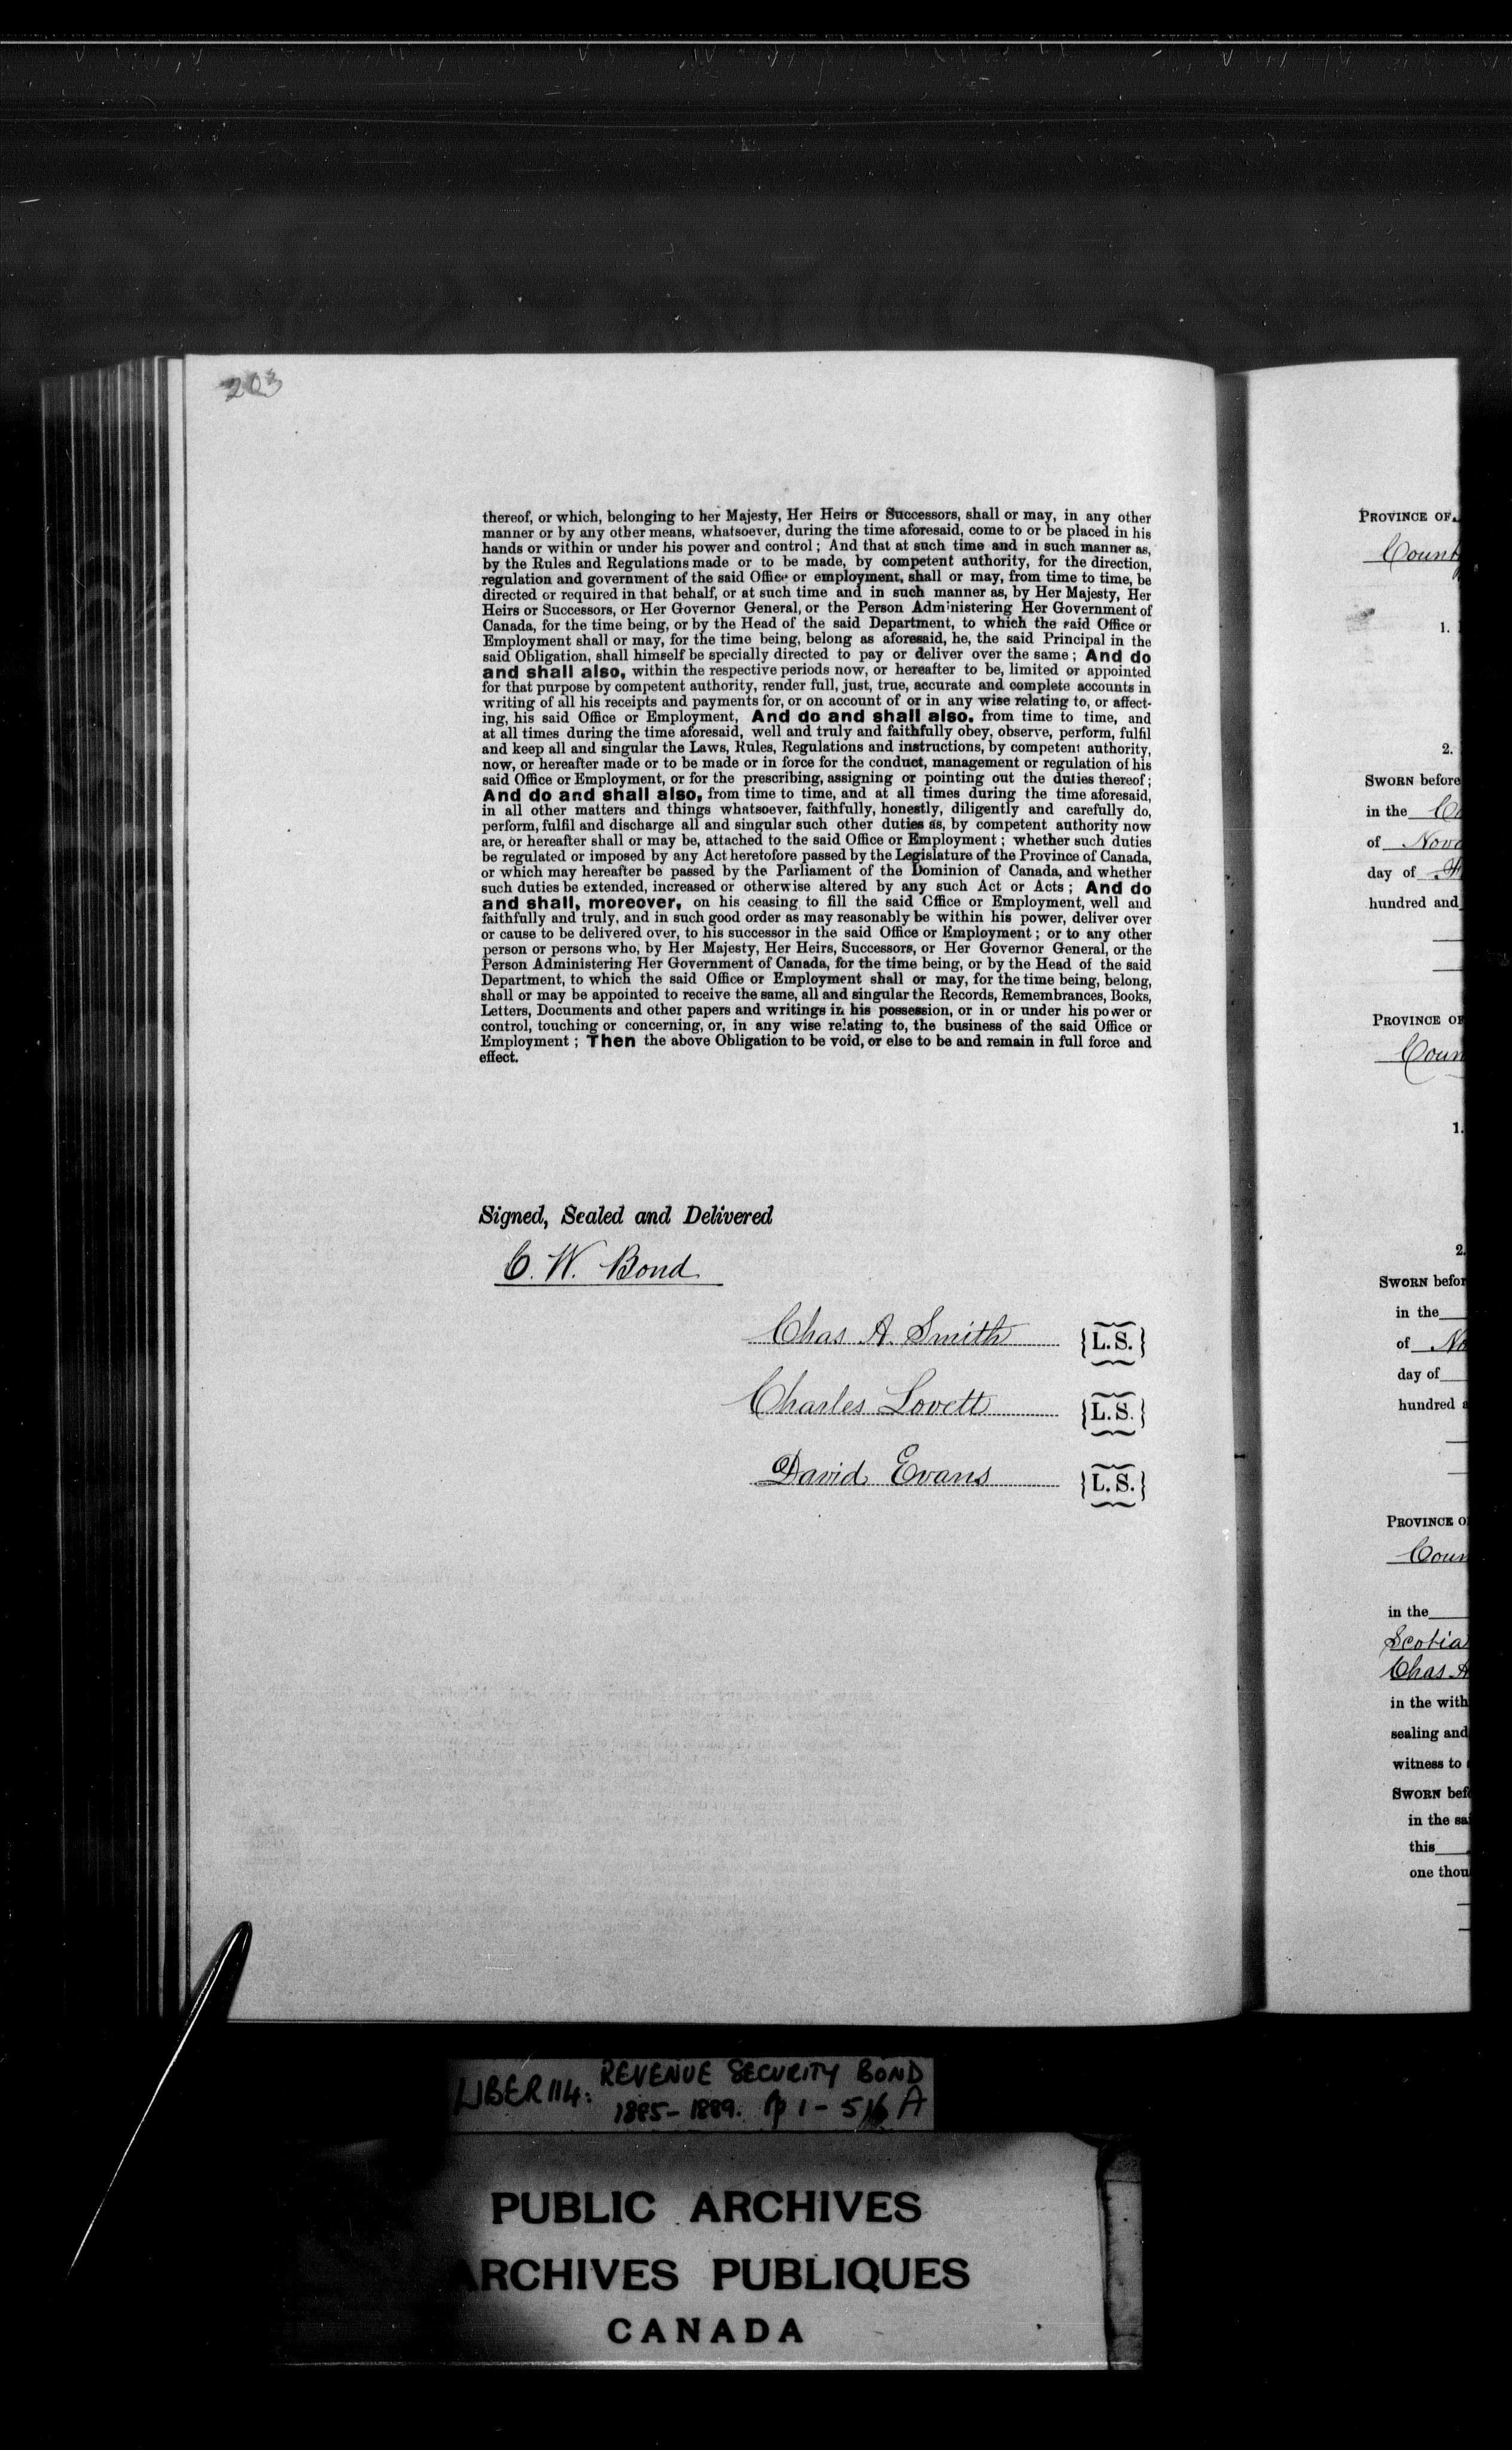 203
thereof, or which, belonging to her Majesty, Her Heirs or Successors, shall or may, in any other
manner or by any other means, whatsoever, during the time aforesaid, come to or be placed in his
hands or within or under his power and control; And that at such time and in such manner as,
by the Rules and Regulations made or to be made, by competent authority, for the direction,
regulation and government of the said Office or employment, shall or may, from time to time, be
directed or required in that behalf, or at such time and in such manner as, by Her Majesty, Her
Heirs or Successors, or Her Governor General, or the Person Administering Her Government of
Canada, for the time being, or by the Head of the said Department, to which the said Office or
Employment shall or may, for the time being, belong as aforesaid, he, the said Principal in the
said Obligation, shall himself be specially directed to pay or deliver over the same; And do
and shall also, within the respective periods now, or hereafter to be, limited or appointed
for that purpose by competent authority, render full, just, true, accurate and complete accounts in
writing of all his receipts and payments for, or on account of or in any wise relating to, or affect-
ing, his said Office or Employment, And do and shall also, from time to time, and
at all times during the time aforesaid, well and truly and faithfully obey, observe, perform, fulfil
and keep all and singular the Laws, Rules, Regulations and instructions, by competent authority,
now, or hereafter made or to be made or in force for the conduct, management or regulation of his
said Office or Employment, or for the prescribing, assigning or pointing out the duties thereof;
And do and shall also, from time to time, and at all times during the time aforesaid,
in all other matters and things whatsoever, faithfully, honestly, diligently and carefully do,
perform, fulfil and discharge all and singular such other duties as, by competent authority now
are, or hereafter shall or may be, attached to the said Office or Employment; whether such duties
be regulated or imposed by any Act heretofore passed by the Legislature of the Province of Canada,
or which may hereafter be passed by the Parliament of the Dominion of Canada, and whether
such duties be extended, increased or otherwise altered by any such Act or Acts; And do
and shall, moreover, on his ceasing to fill the said Office or Employment, well and
faithfully and truly, and in such good order as may reasonably be within his power, deliver over
or cause to be delivered over, to his successor in the said Office or Employment; or to any other
person or persons who, by Her Majesty, Her Heirs, Successors, or Her Governor General, or the
Person Administering Her Government of Canada, for the time being, or by the Head of the said
Department, to which the said Office or Employment shall or may, for the time being, belong,
shall or may be appointed to receive the same, all and singular the Records, Remembrances, Books,
Letters, Documents and other papers and writings in his possession, or in or under his power or
control, touching or concerning, or, in any wise relating to, the business of the said Office or
Employment; Then the above Obligation to be void, or else to be and remain in full force and
effect.
Signed, Sealed and Delivered
C. W. Bond
Chas A. Smith {L.S.}
Charles Lovett {L.S.}
David Evans {L.S.}
PROVINCE OF
1.
2.
SWORN before
in the
of
day of
hundred and
PROVINCE OF
1.
2.
SWORN
in the
of
day of
hundred
PROVINCE
in the
Scotia
Chas A
in the
sealing and
witness to
SWORN
in the
this
one
LIBER 114: REVENUE SECURITY BOND
1885-1889. pp 1-516 A
PUBLIC ARCHIVES
ARCHIVES PUBLIQUES
CANADA